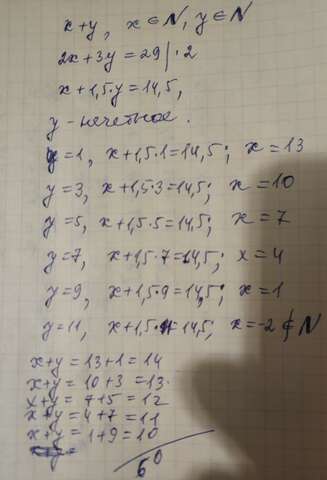 x+y, x∈N, y∈N
2x+3y=29|:2
x+1,5·y=14,5,
y-нечетное.
y=1, x+1,5·1=14,5; x=13
y=3, x+1,5·3=14,5; x=10
y=5, x+1,5·5=14,5; x=7
y=7, x+1,5·7=14,5; x=4
y=9, x+1,5·9=14,5; x=1
y=11, x+1,5·11=14,5; x=-2∉N
x+y=13+1=14
x+y=10+3=13
x+y=7+5=12
x+y=4+7=11
x+y=1+9=10
60